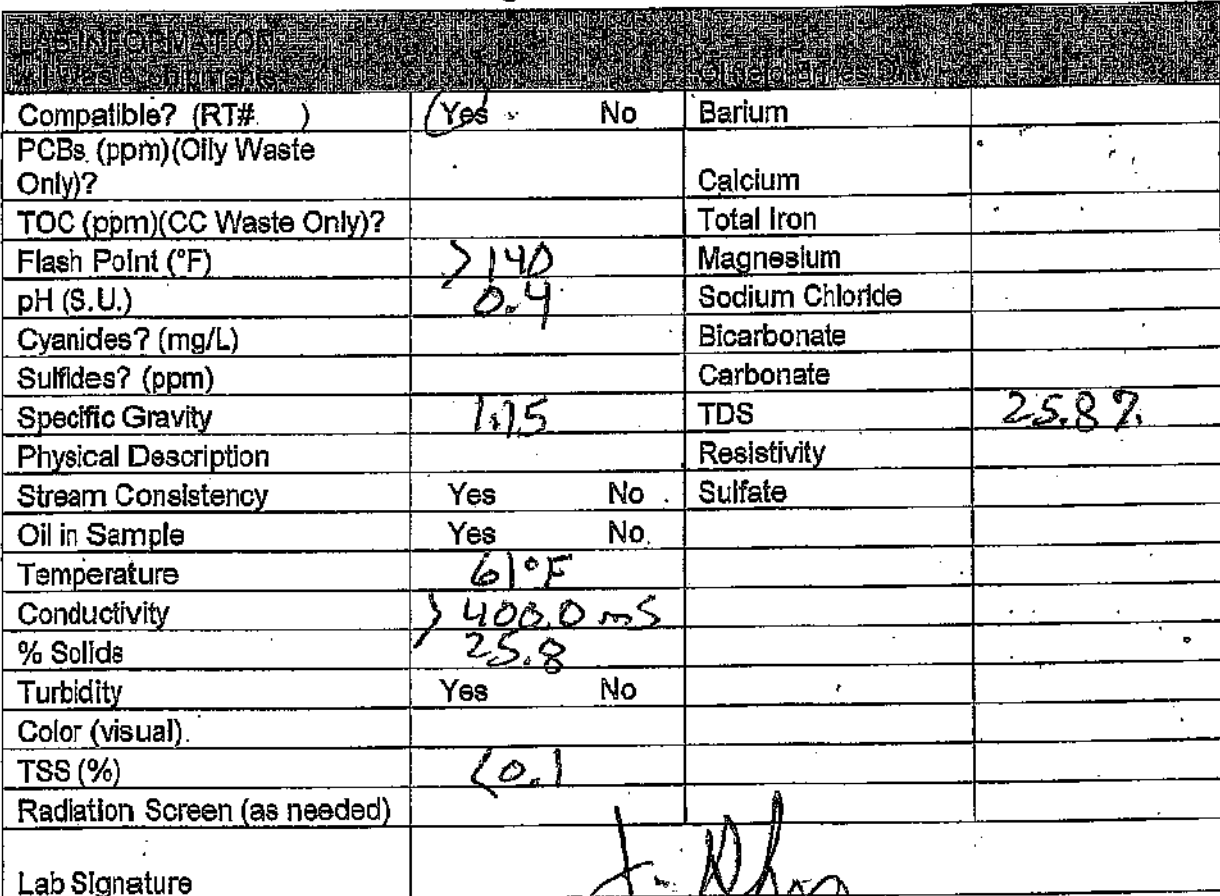 LAB INFORMATION
All Waste Shipments Oilfield Brines Only
Compatible? (RT# ) Yes No Barium
PCBs (ppm)(Oily Waste
Only)? Calcium
TOC (ppm)(CC Waste Only)? Total Iron
Flash Point (°F) >140 Magnesium
pH (S.U.) 0.4 Sodium Chloride
Cyanides? (mg/L) Bicarbonate
Sulfides? (ppm) Carbonate
Specific Gravity 1.15 TDS 25.8%
Physical Description Resistivity
Stream Consistency Yes No Sulfate
Oil in Sample Yes No
Temperature 61°F
Conductivity >400.0 mS
% Solids 25.8
Turbidity Yes No
Color (visual)
TSS (%) <0.1
Radiation Screen (as needed)
Lab Signature